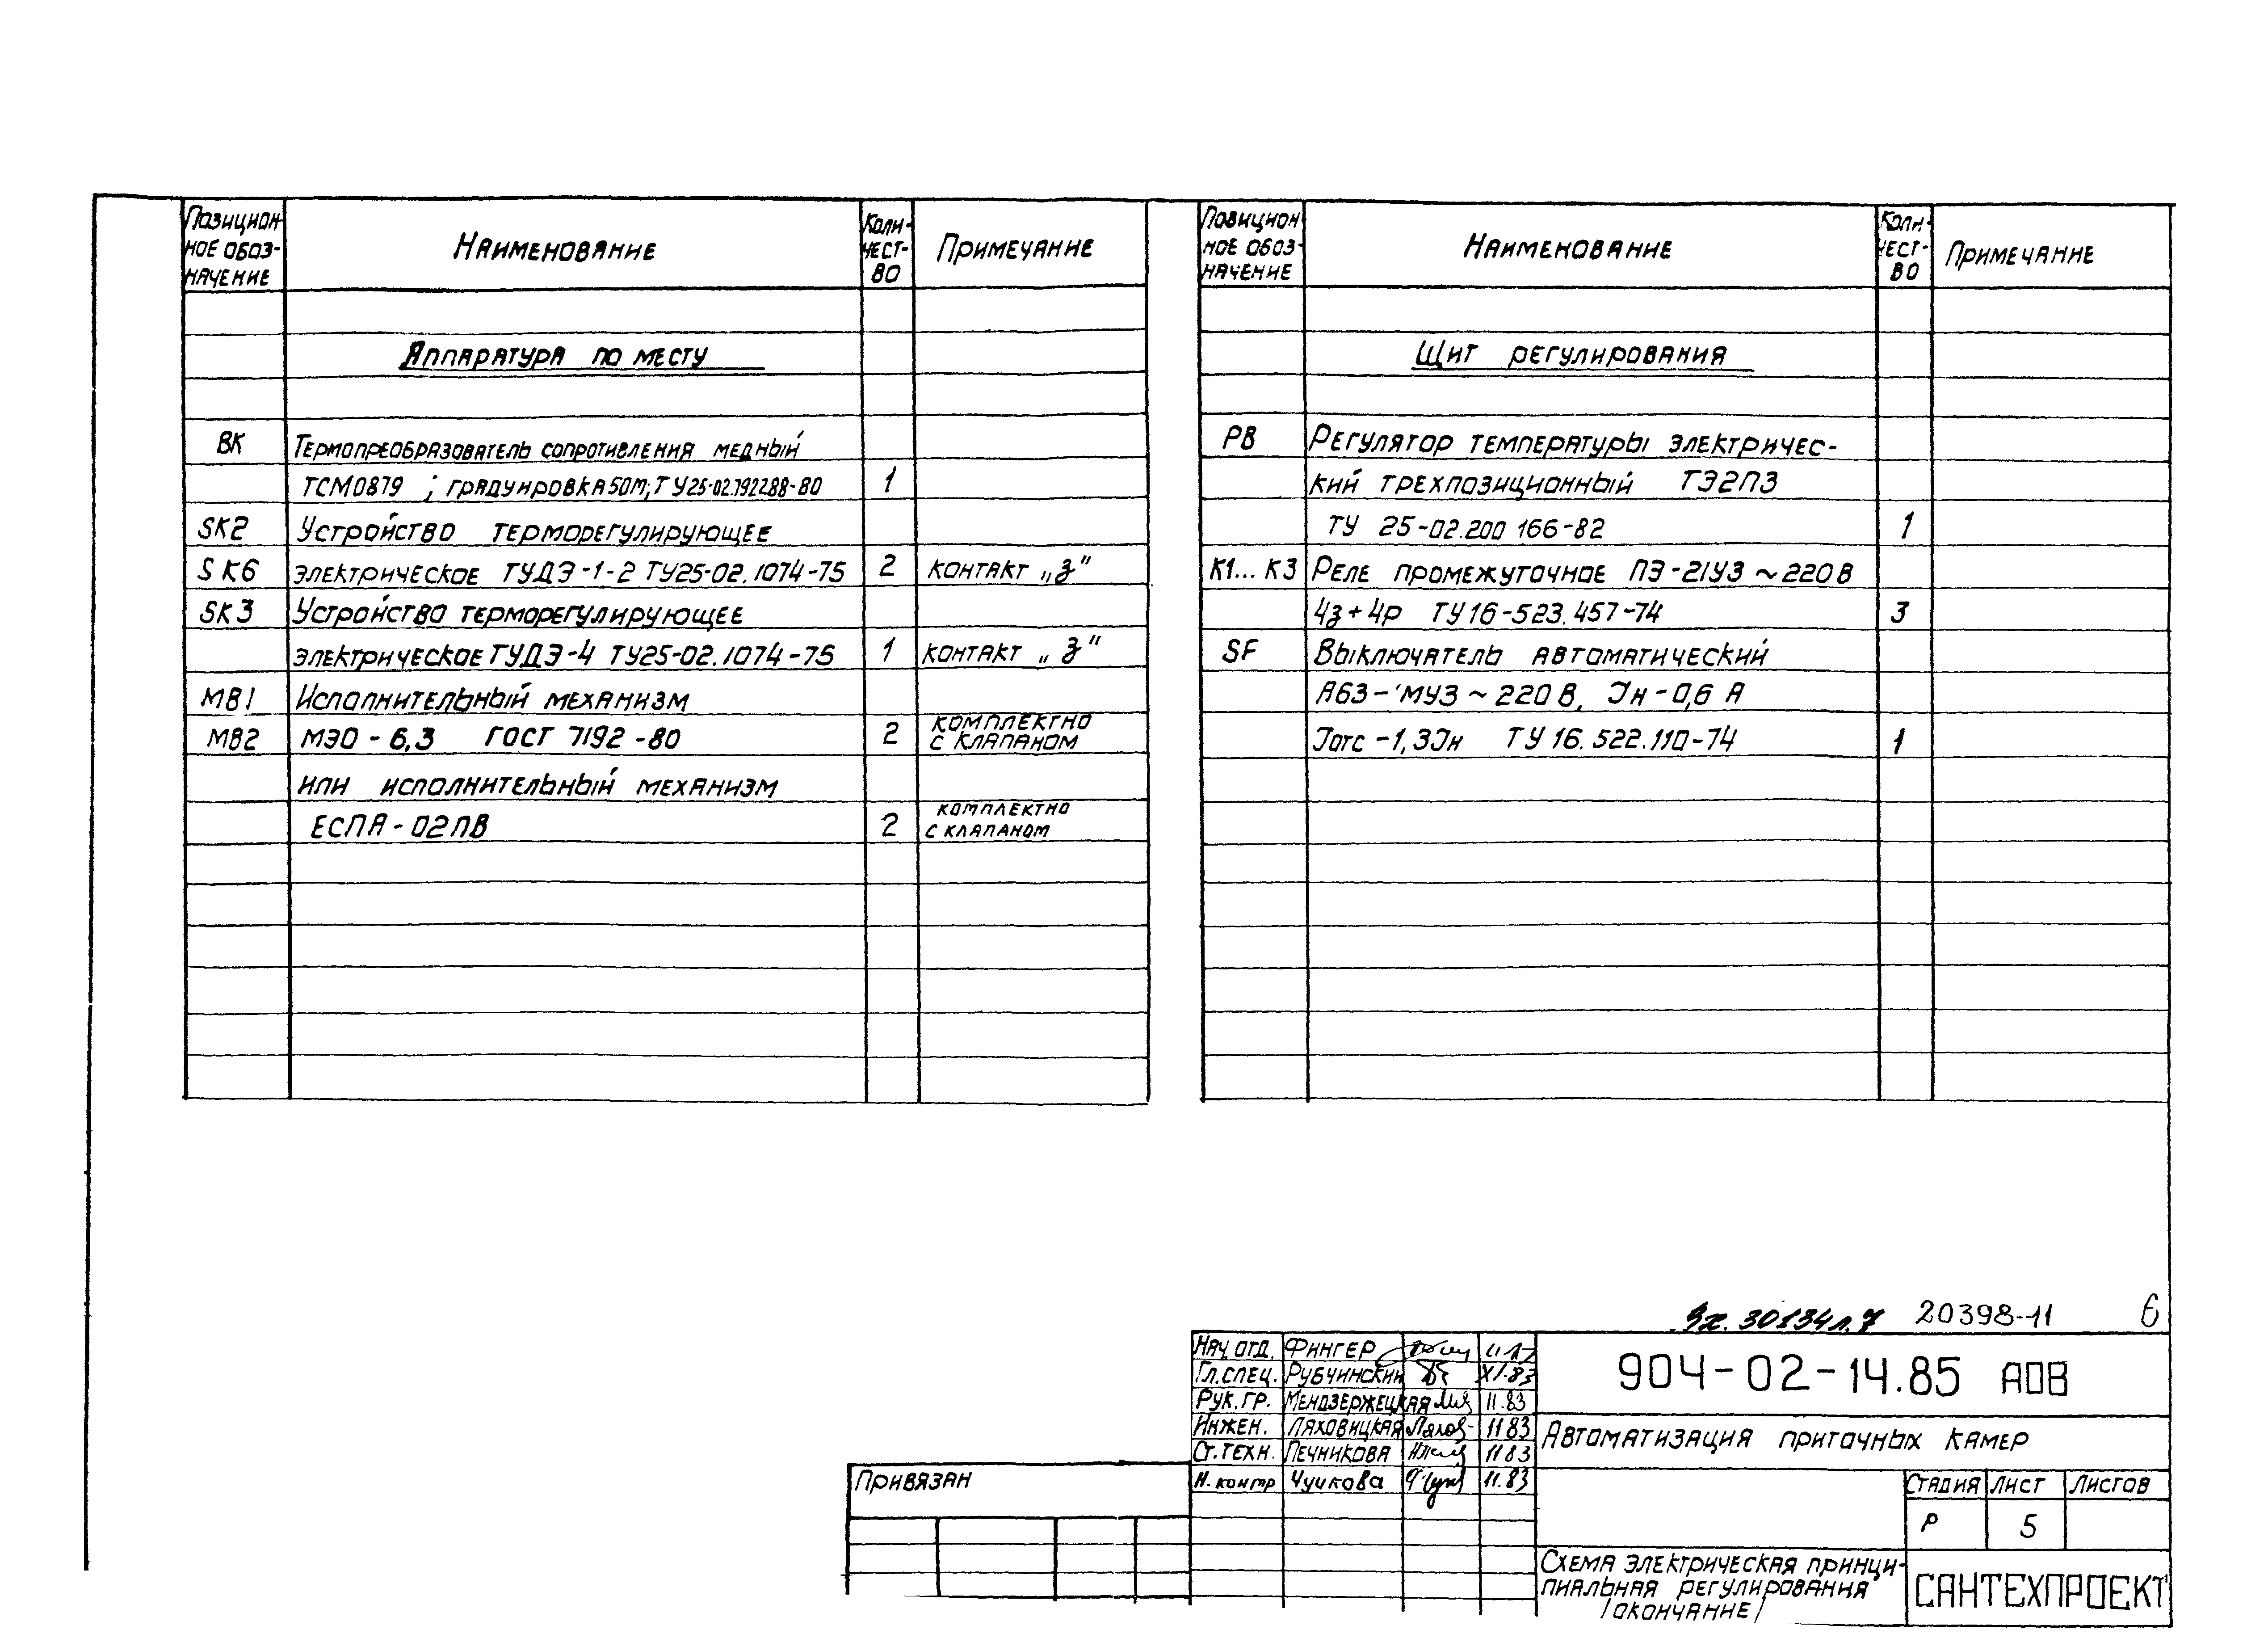 Позицион-
ное обоз-
начение
Наименование
Коли-
чест-
во
Примечание
Аппаратура по месту
ВК Термопреобразователь сопротивления медный
ТСМ0879 ; градуировка 50М; ТУ25-02.792288-80 1
SK2 Устройство терморегулирующее
SK6 электрическое ТУДЭ-1-2 ТУ25-02.1074-75 2 контакт „з"
SK3 Устройство терморегулирующее
электрическое ТУДЭ-4 ТУ25-02.1074-75 1 контакт „з"
МВ1 Исполнительный механизм
МВ2 МЭО - 6,3 ГОСТ 7192-80 2 комплектно
с клапаном
или исполнительный механизм
ЕСПА-02ПВ 2 комплектно
с клапаном
Позицион-
ное обоз-
начение
Наименование
Коли-
чест-
во
Примечание
Щит регулирования
РВ Регулятор температуры электричес-
кий трехпозиционный ТЭ2П3
ТУ 25-02.200 166-82 1
К1...К3 Реле промежуточное ПЭ-21У3 ~220В
4з+4р ТУ16-523.457-74 3
SF Выключатель автоматический
А63-МУ3 ~220В, Iн-0,6 А
Iотс-1,3Iн ТУ 16.522.110-74 1
Зх. 30134 л.7 20398-11 6
Нач. отд. Фингер
Гл. спец. Рубчинский XI.83
Рук. гр. Мендзержецкая 11.83
Инжен. Ляховицкая 11 83
Ст. техн. Печникова 11 83
Н. контр Чучкова 11.83
904-02-14.85 АОВ
Автоматизация приточных камер
Стадия Лист Листов
Р 5
Схема электрическая принци-
пиальная регулирования
/окончание/
САНТЕХПРОЕКТ
Привязан